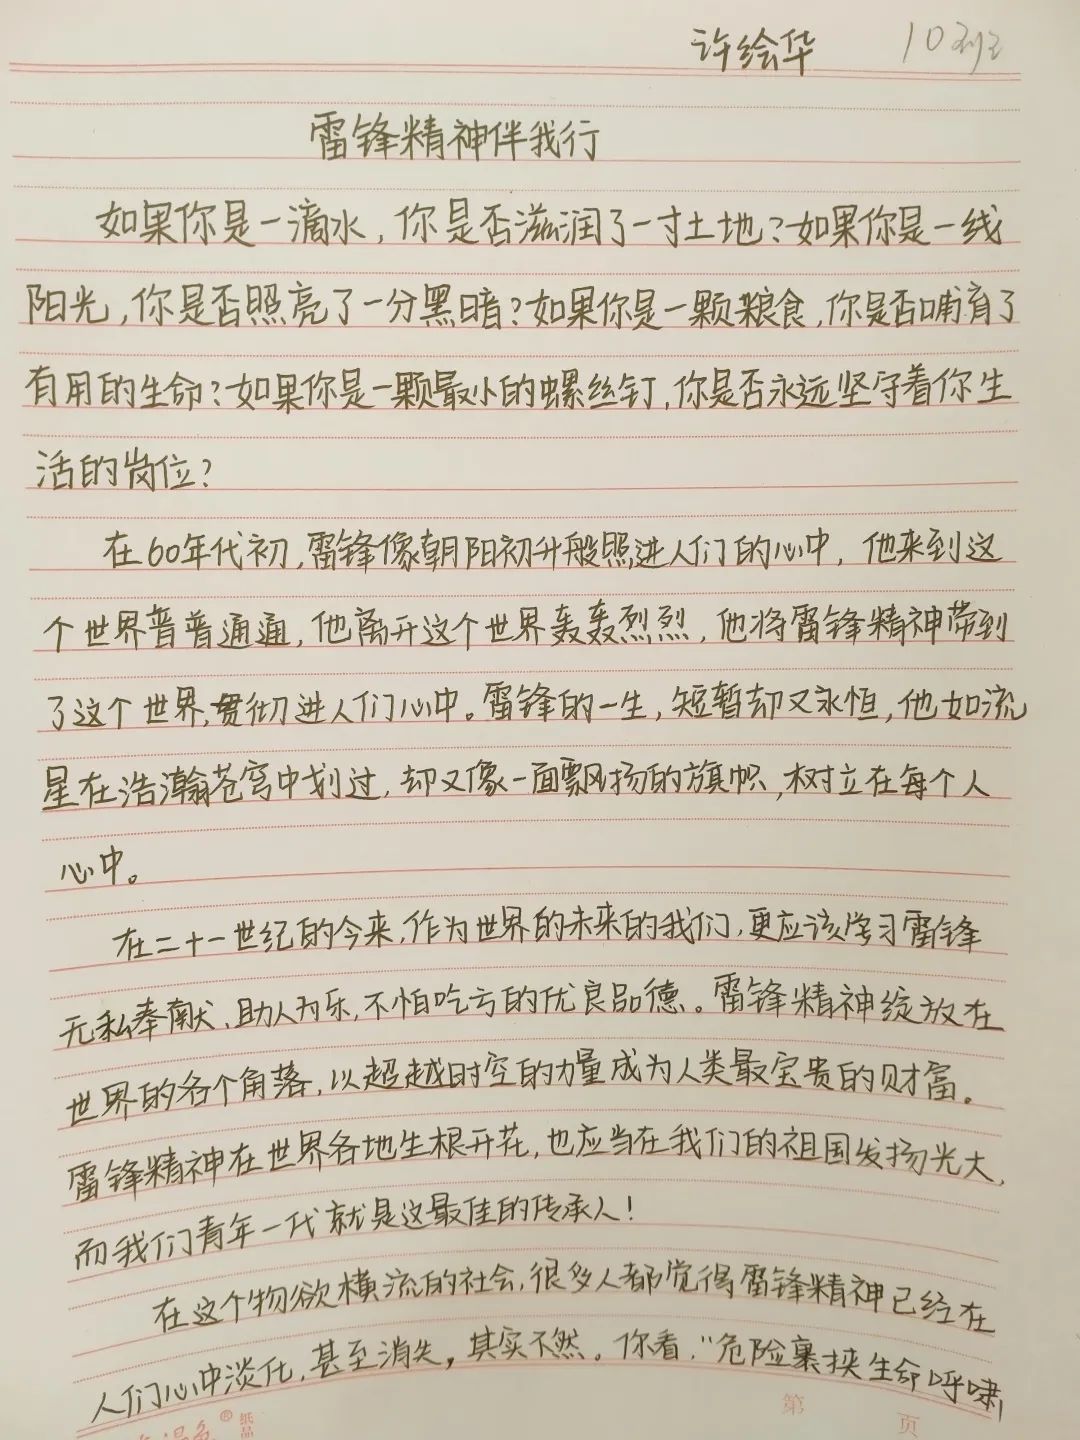 许绘华 10班
雷锋精神伴我行
如果你是一滴水，你是否滋润了一寸土地？如果你是一线
阳光，你是否照亮了一分黑暗？如果你是一颗粮食，你是否哺育了
有用的生命？如果你是一颗最小的螺丝钉，你是否永远坚守着你生
活的岗位？
在60年代初，雷锋像朝阳初升般照进人们的心中，他来到这
个世界普普通通，他离开这个世界轰轰烈烈，他将雷锋精神带到
了这个世界，贯彻进人们心中。雷锋的一生，短暂却又永恒，他如流
星在浩瀚苍穹中划过，却又像一面飘扬的旗帜，树立在每个人
心中。
在二十一世纪的今来，作为世界的未来的我们，更应该学习雷锋
无私奉献、助人为乐，不怕吃亏的优良品德。雷锋精神绽放在
世界的各个角落，以超越时空的力量成为人类最宝贵的财富。
雷锋精神在世界各地生根开花，也应当在我们的祖国发扬光大，
而我们青年一代就是这最佳的传承人！
在这个物欲横流的社会，很多人都觉得雷锋精神已经在
人们心中淡化，甚至消失，其实不然。你看，“危险裹挟生命呼啸，
® 纸品 第 页